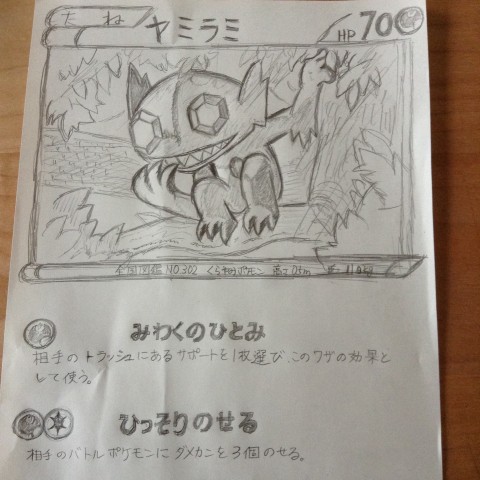 たね ヤミラミ HP 70
全国図鑑 NO.302 くらやみポケモン 高さ 0.5m 重さ 11.0kg
みわくのひとみ
相手のトラッシュにあるサポートを1枚選び、このワザの効果と
して使う。
ひっそりのせる
相手のバトルポケモンにダメカンを3個のせる。